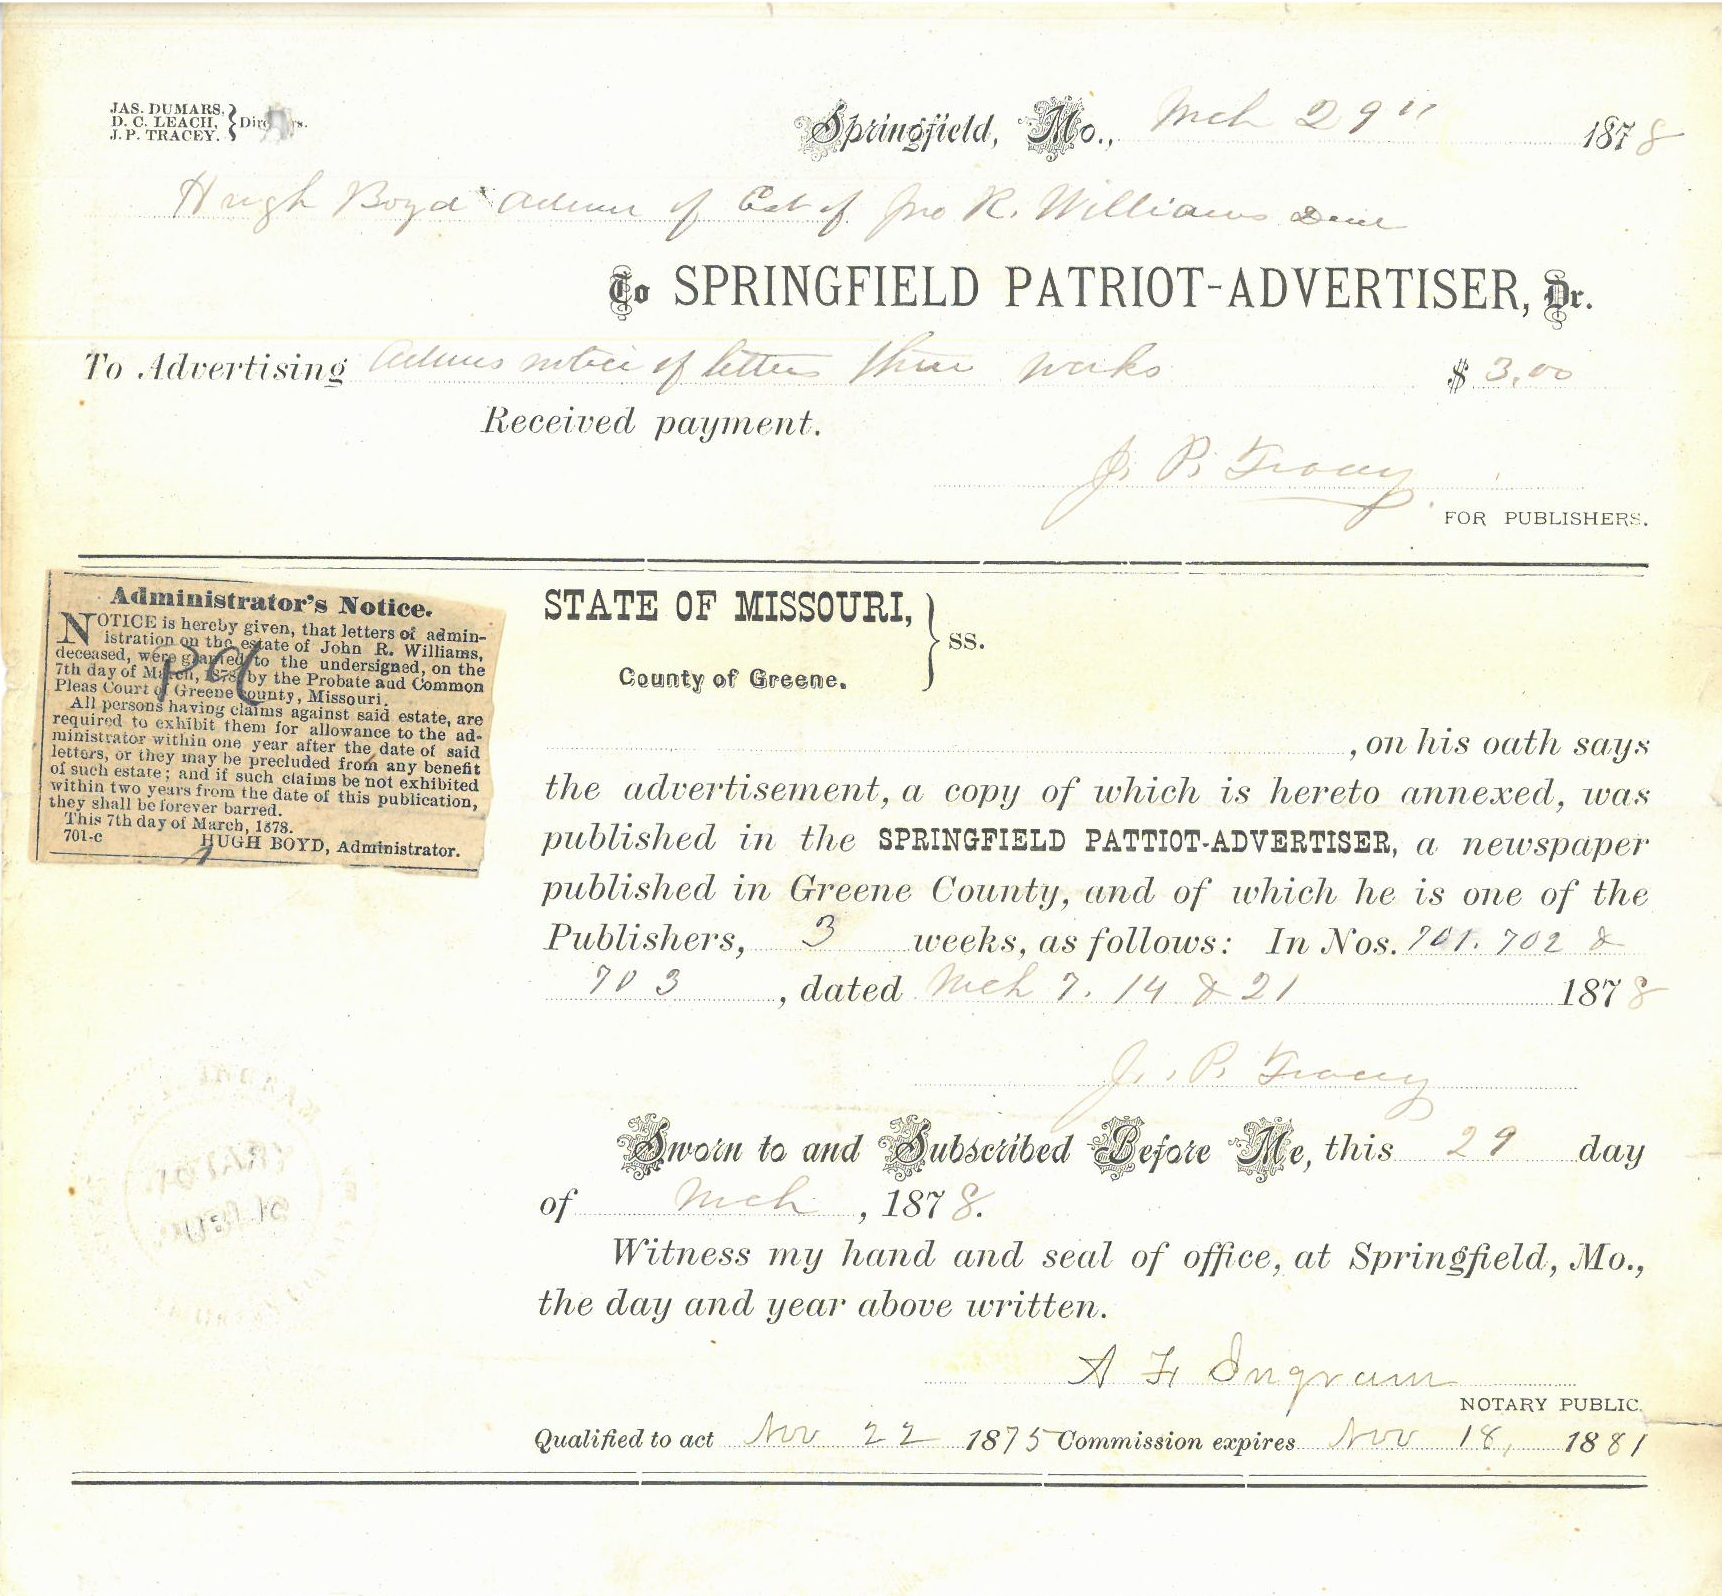 JAS. DUMARS,
D. C. LEACH,
J. P. TRACEY.
Springfield, Mo., Mch 29" 1878
Hugh Boyd Admr of Est of Jno R. Williams Decd
To SPRINGFIELD PATRIOT-ADVERTISER, Dr.
To Advertising Admrs notice of letters three weeks $ 3.00
Received payment.
J. P. Tracey
FOR PUBLISHERS.
Administrator's Notice.
NOTICE is hereby given, that letters of admin-
istration on the estate of John R. Williams,
deceased, were granted to the undersigned, on the
7th day of March, 1878, by the Probate and Common
Pleas Court of Greene County, Missouri.
All persons having claims against said estate, are
required to exhibit them for allowance to the ad-
ministrator within one year after the date of said
letters, or they may be precluded from any benefit
of such estate; and if such claims be not exhibited
within two years from the date of this publication,
they shall be forever barred.
This 7th day of March, 1878.
701-c HUGH BOYD, Administrator.
Pd
STATE OF MISSOURI,
County of Greene. ss.
, on his oath says
the advertisement, a copy of which is hereto annexed, was
published in the SPRINGFIELD PATTIOT-ADVERTISER, a newspaper
published in Greene County, and of which he is one of the
Publishers, 3 weeks, as follows: In Nos. 701. 702 &
703, dated Mch 7. 14 & 21 1878
J. P. Tracey
Sworn to and Subscribed Before Me, this 29 day
of Mch, 1878.
Witness my hand and seal of office, at Springfield, Mo.,
the day and year above written.
A F Ingram
NOTARY PUBLIC.
Qualified to act Nov 22 1875 Commission expires Nov 18, 1881